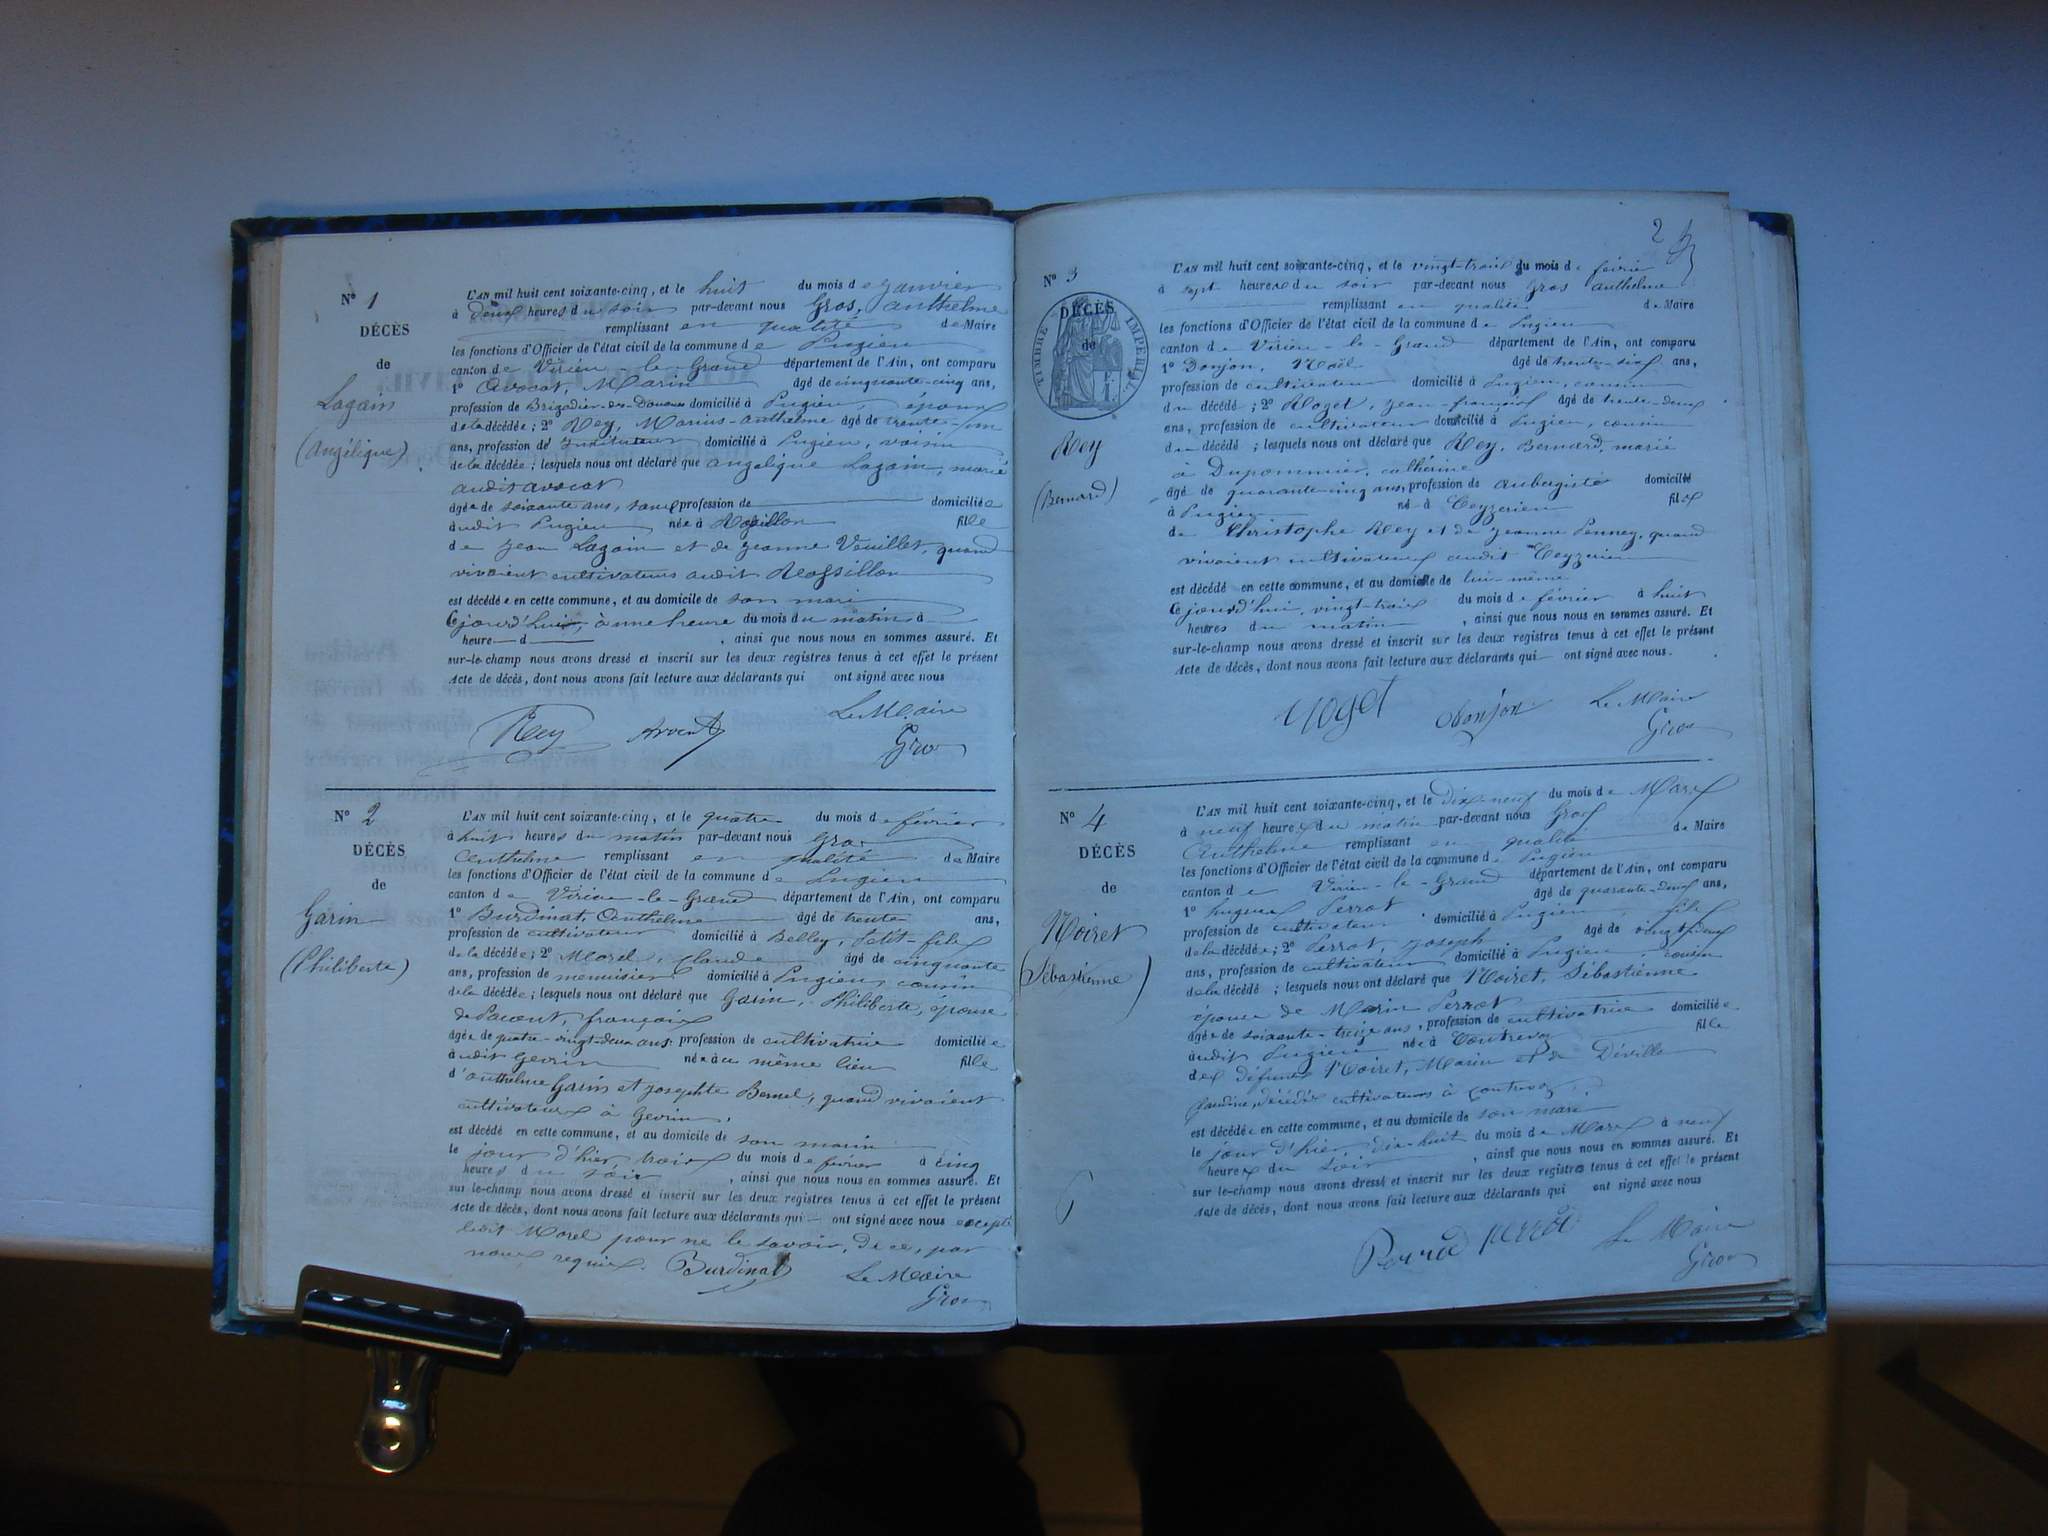 N° 1
DÉCÈS
de
Lagain
(Angélique)
L'AN mil huit cent soixante-cinq, et le huit du mois de janvier
à deux heures du soir par-devant nous Gros, Anthelme
remplissant en qualité de Maire
les fonctions d'Officier de l'état civil de la commune de Pugieu
canton de Virieu-le-Grand département de l'Ain, ont comparu
1° Avocat, Marin âgé de cinquante-cinq ans,
profession de Brigadier-des-Douanes domicilié à Pugieu, époux
de la décédée; 2° Rey, Marius-Anthelme âgé de trente-un
ans, profession d'instituteur domicilié à Pugieu, voisin
de la décédée; lesquels nous ont déclaré que Angélique Lagain, mariée
audit avocat
âgée de soixante ans, sans profession de domiciliée
audit Pugieu née à Rossillon fille
de Jean Lagain et de Jeanne Veuillet, quand
vivaient cultivateurs audit Rossillon
est décédée en cette commune, et au domicile de son mari
Ce jourd'hui, à une heure du mois du matin à
heure d , ainsi que nous nous en sommes assuré. Et
sur-le-champ nous avons dressé et inscrit sur les deux registres tenus à cet effet le présent
Acte de décès, dont nous avons fait lecture aux déclarants qui ont signé avec nous
Rey Le Maire
Gros
N° 2
DÉCÈS
de
Garin
(Philiberte)
L'AN mil huit cent soixante-cinq, et le quatre du mois de février
à huit heures du matin par-devant nous Gros
Anthelme remplissant en qualité de Maire
les fonctions d'Officier de l'état civil de la commune de Pugieu
canton de Virieu-le-Grand département de l'Ain, ont comparu
1° Burdinat, Anthelme âgé de trente ans,
profession de cultivateur domicilié à Belley, petit-fils
de la décédée; 2° Morel, Claude âgé de cinquante
ans, profession de menuisier domicilié à Pugieu, cousin
de la décédée; lesquels nous ont déclaré que Garin, Philiberte, épouse
de françois
âgée de quatre-vingt-deux ans profession de cultivatrice domiciliée
audit Gevrin née à ce même lieu fille
d'Anthelme Garin et Josephte Bernel, quand vivaient
cultivateurs à Gevrin.
est décédé en cette commune, et au domicile de son
le jour d'hier trois du mois de février à cinq
heures du soir , ainsi que nous nous en sommes assuré. Et
sur le-champ nous avons dressé et inscrit sur les deux registres tenus à cet effet le présent
Acte de décès, dont nous avons fait lecture aux déclarants qui ont signé avec nous excepté
ledit Morel pour ne le savoir, de ce, par
nous requis. Burdinat Le Maire
Gros
2
N° 3
TIMBRE IMPERIAL
DÉCÈS
de
Rey
(Bernard)
L'AN mil huit cent soixante-cinq, et le vingt-trois du mois de février
à sept heures du soir par-devant nous Gros Anthelme
remplissant en qualité de Maire
les fonctions d'Officier de l'état civil de la commune de Pugieu
canton de Virieu-le-Grand département de l'Ain, ont comparu
1° Donjon, Noël âgé de trente-six ans,
profession de cultivateur domicilié à Pugieu, cousin
du décédé; 2° Moget, Jean-françois âgé de trente-deux
ans, profession de cultivateur domicilié à Pugieu, cousin
du décédé; lesquels nous ont déclaré que Rey, Bernard, marié
à Dupommier, cathérine
âgé de quarante-cinq ans, profession de aubergiste domicilié
à Pugieu né à Ceyzerieu fils
de Christophe Rey et de Jeanne Penney, quand
vivaient cultivateurs audit Ceyzerieu
est décédé en cette commune, et au domicile de lui-même
Ce jourd'hui, vingt-trois du mois de février à huit
heures du matin , ainsi que nous nous en sommes assuré. Et
sur-le-champ nous avons dressé et inscrit sur les deux registres tenus à cet effet le présent
Acte de décès, dont nous avons fait lecture aux déclarants qui ont signé avec nous.
Moget Donjon Le Maire
Gros
N° 4
DÉCÈS
de
Noiret
(Sébastienne)
L'AN mil huit cent soixante-cinq, et le dix-neuf du mois de Mars
à neuf heures du matin par-devant nous Gros
Anthelme remplissant en qualité de Maire
les fonctions d'Officier de l'état civil de la commune de Pugieu
canton de Virieu-le-Grand département de l'Ain, ont comparu
1° Perrot âgé de quarante-deux ans,
profession de cultivateur domicilié à Pugieu, fils
de la décédée; 2° Perrot, Joseph âgé de
ans, profession de cultivateur domicilié à Pugieu, cousin
de la décédé; lesquels nous ont déclaré que Noiret, Sébastienne
épouse de Marin Perrot
âgée de soixante-treize ans, profession de cultivatrice domiciliée
audit Pugieu née à Contrevoz fille
des défunts Noiret, Marin et de Déville
décédés cultivateurs à Contrevoz
est décédée en cette commune, et au domicile de son mari
le jour d'hier, dix-huit du mois de Mars à neuf
heures du soir , ainsi que nous nous en sommes assuré. Et
sur le-champ nous avons dressé et inscrit sur les deux registres tenus à cet effet le présent
Acte de décès, dont nous avons fait lecture aux déclarants qui ont signé avec nous
Perrot Perrot Le Maire
Gros